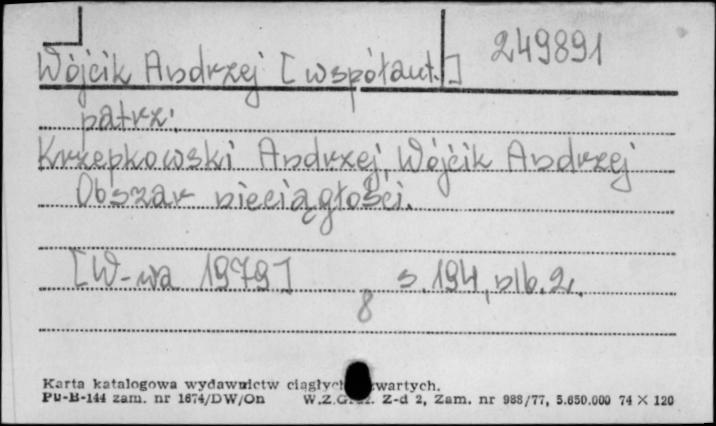 249891
Wójcik Andrzej [współaut.]
patrz:
Krzepkowski Andrzej, Wójcik Andrzej
Obszar nieciągłości.
[W-wa 1979] s. 194, nlb. 2.
8
Karta katalogowa wydawnictw ciągłych zwartych.
PU-B-144 zam. nr 1674/DW/On W.Z.Graf. Z-d 2, Zam. nr 988/77, 5.650.000 74 × 120